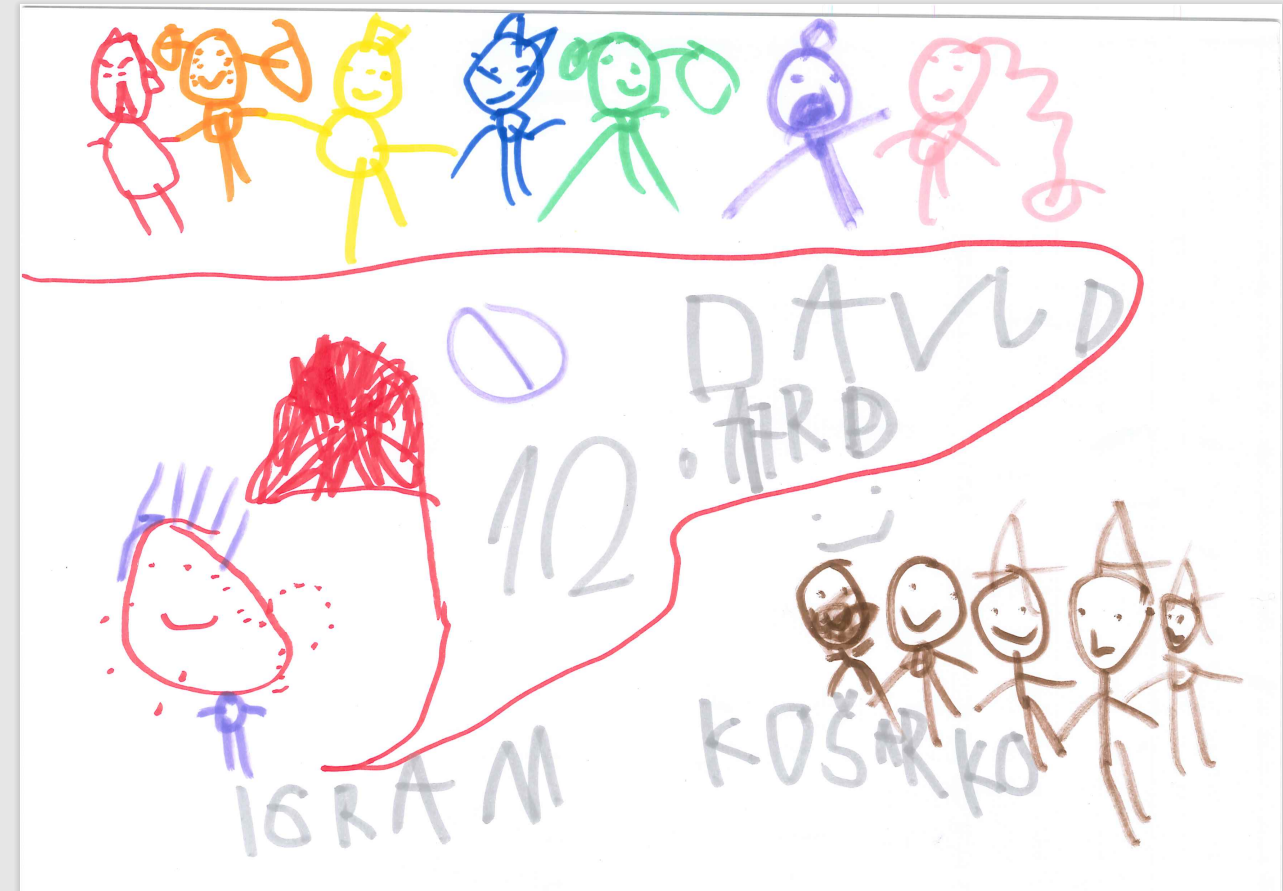 DAVID
12.
IGRAM KOŠARKO